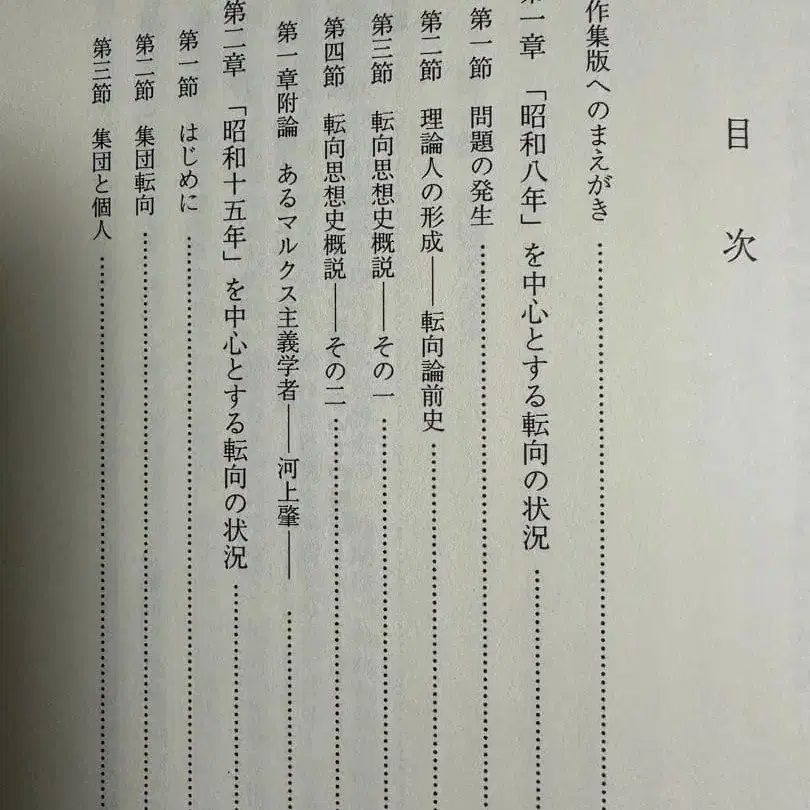 目次
作集版へのまえがき
第一章 「昭和八年」を中心とする転向の状況
第一節 問題の発生
第二節 理論人の形成——転向論前史
第三節 転向思想史概説——その一
第四節 転向思想史概説——その二
第一章附論 あるマルクス主義学者——河上肇——
第二章 「昭和十五年」を中心とする転向の状況
第一節 はじめに
第二節 集団転向
第三節 集団と個人